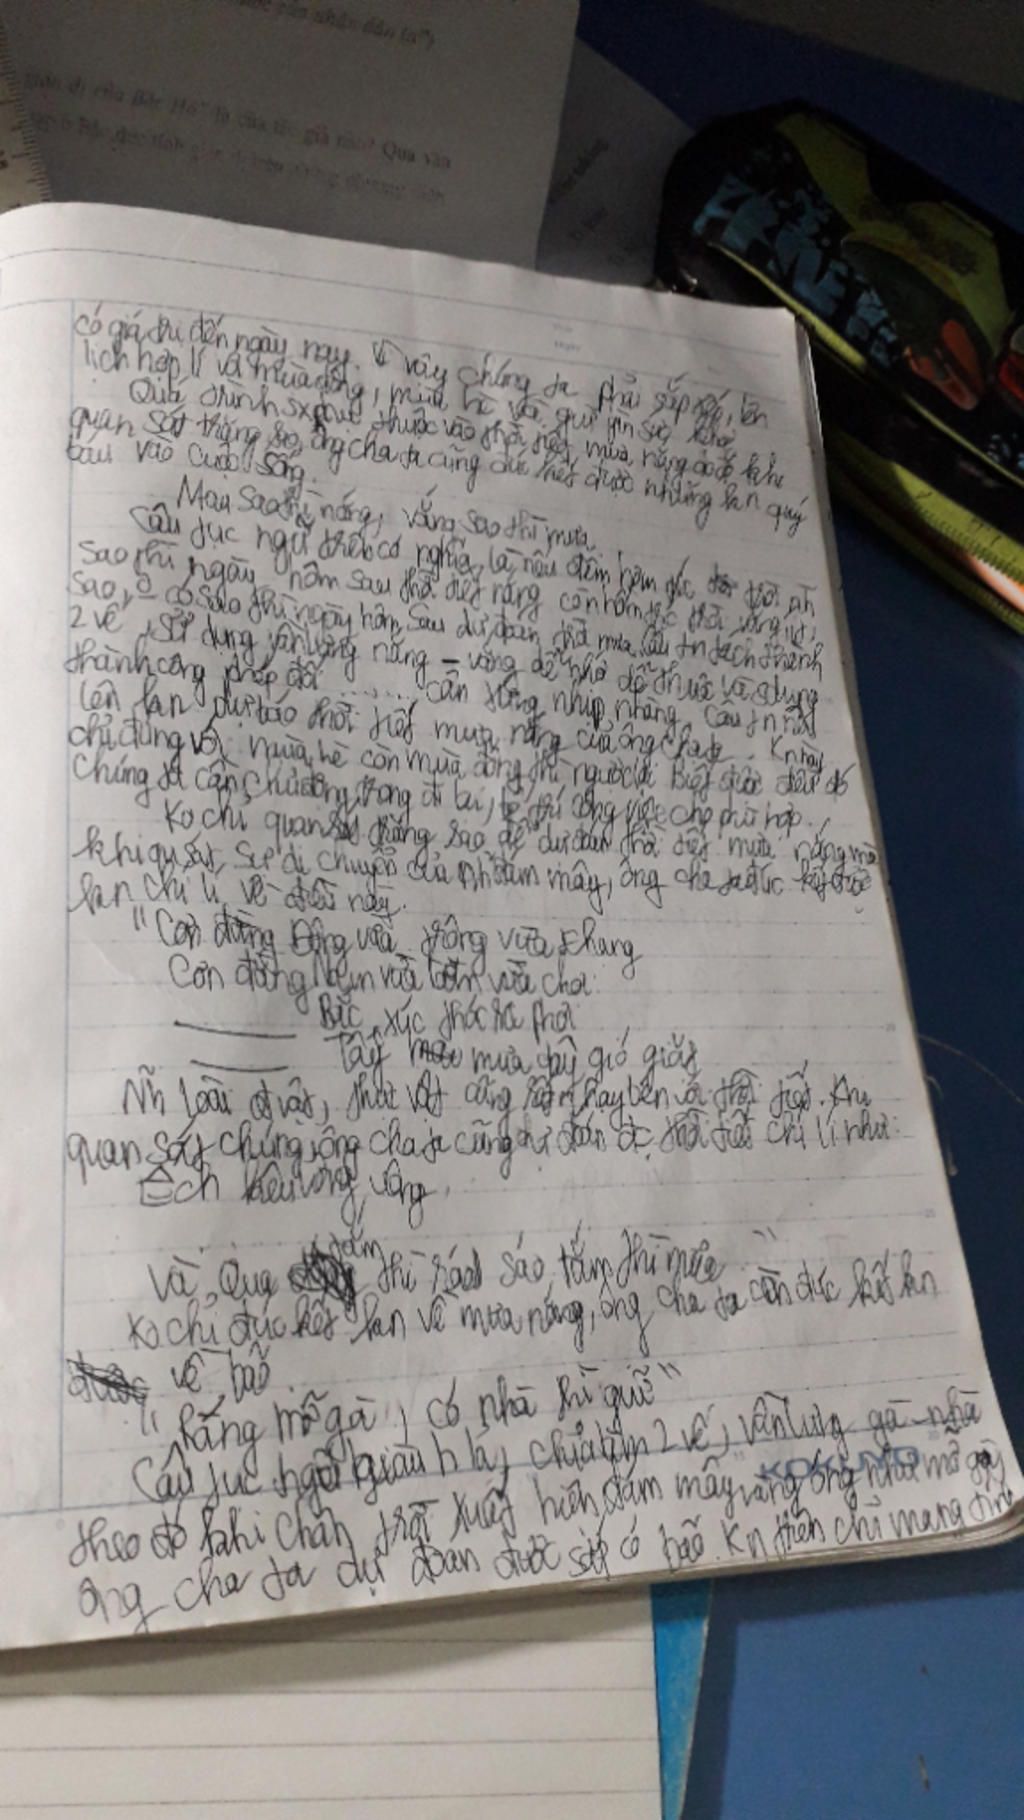 giản dị của Bác Hồ" là của tác giả nào? Qua văn
có giá trị đến ngày nay. Vì vậy chúng ta phải sắp xếp, lên
lịch hợp lí và mùa đông, mùa hè và giữ gìn sức khoẻ
Quá trình sx phụ thuộc vào thời tiết, mưa, nắng do đó khi
quan sát trăng sao, ông cha ta cũng đúc kết được những kn quý
báu vào cuộc sống.
Mau sao thì nắng, vắng sao thì mưa.
Câu tục ngữ trên có nghĩa là nếu đêm hôm trc trời nh
sao thì ngày hôm sau thời tiết nắng còn hôm trc trời vắng
sao, o có sao thì ngày hôm sau dự đoán trời mưa. Câu tn tách thành
2 vế, sử dụng vần lưng nắng - vắng dễ nhớ dễ thuộc và sdụng
thành công phép đối ...... cân xứng nhịp nhàng. Câu tn nêu
lên kn dự báo thời tiết mưa nắng của ông cha ta. Kn này
chỉ đúng với mùa hè còn mùa đông thì ngược lại. Biết được điều đó
chúng ta cần chủ động trong đi lại, bố trí công việc cho phù hợp.
Ko chỉ quan sát trăng sao để dự đoán thời tiết mưa nắng mà
khi qu sát sự di chuyển của nh đám mây, ông cha ta đúc kết được
kn chí lí về điều này.
"Cơn đằng Đông vừa trông vừa chạy
Cơn đằng Nam vừa làm vừa chơi
Bắc xúc thóc ra phơi
Tây mưa dây gió giật
Nh loài đ vật, thực vật cũng rất nhạy bén với thời tiết. Khi
quan sát chúng, ông cha ta cũng dự đoán đc thời tiết chí lí như:
Ếch kêu uông uông,
Và, Quạ tắm thì ráo sáo tắm thì mưa"
Ko chỉ đúc kết kn về mưa nắng, ông cha ta còn đúc kết kn
về bão
"Ráng mỡ gà, có nhà thì giữ"
Câu tục ngữ giàu h ả, chia làm 2 vế, vần lưng gà - nhà
theo đó khi chân trời xuất hiện đám mây vàng óng như mỡ gà
ông cha ta dự đoán được sắp có bão. Kn trên chỉ mang tính
KOKUYO